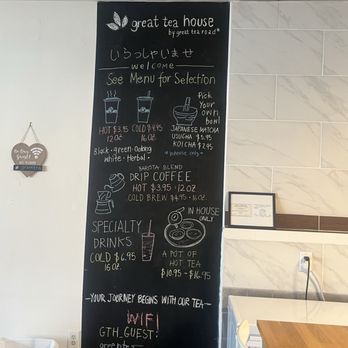 great tea house
by great tea road
いらっしゃいませ
welcome
See Menu for Selection
Pick
Your
own
bowl
HOT $3.95
12 oz
COLD $4.95
16 oz.
JAPANESE MATCHA
USUCHA
KOICHA
Black · green · Oolong
white · Herbal ·
BARISTA BLEND
DRIP COFFEE
HOT $3.95 · 12 OZ
COLD BREW $4.95 · 16 OZ
SPECIALTY
DRINKS
COLD $6.95
16 oz.
IN HOUSE
ONLY
A POT OF
HOT TEA
$10.95 - $16.95
—YOUR JOURNEY BEGINS WITH OUR TEA—
WIFI
GTH_GUEST:
great tea house